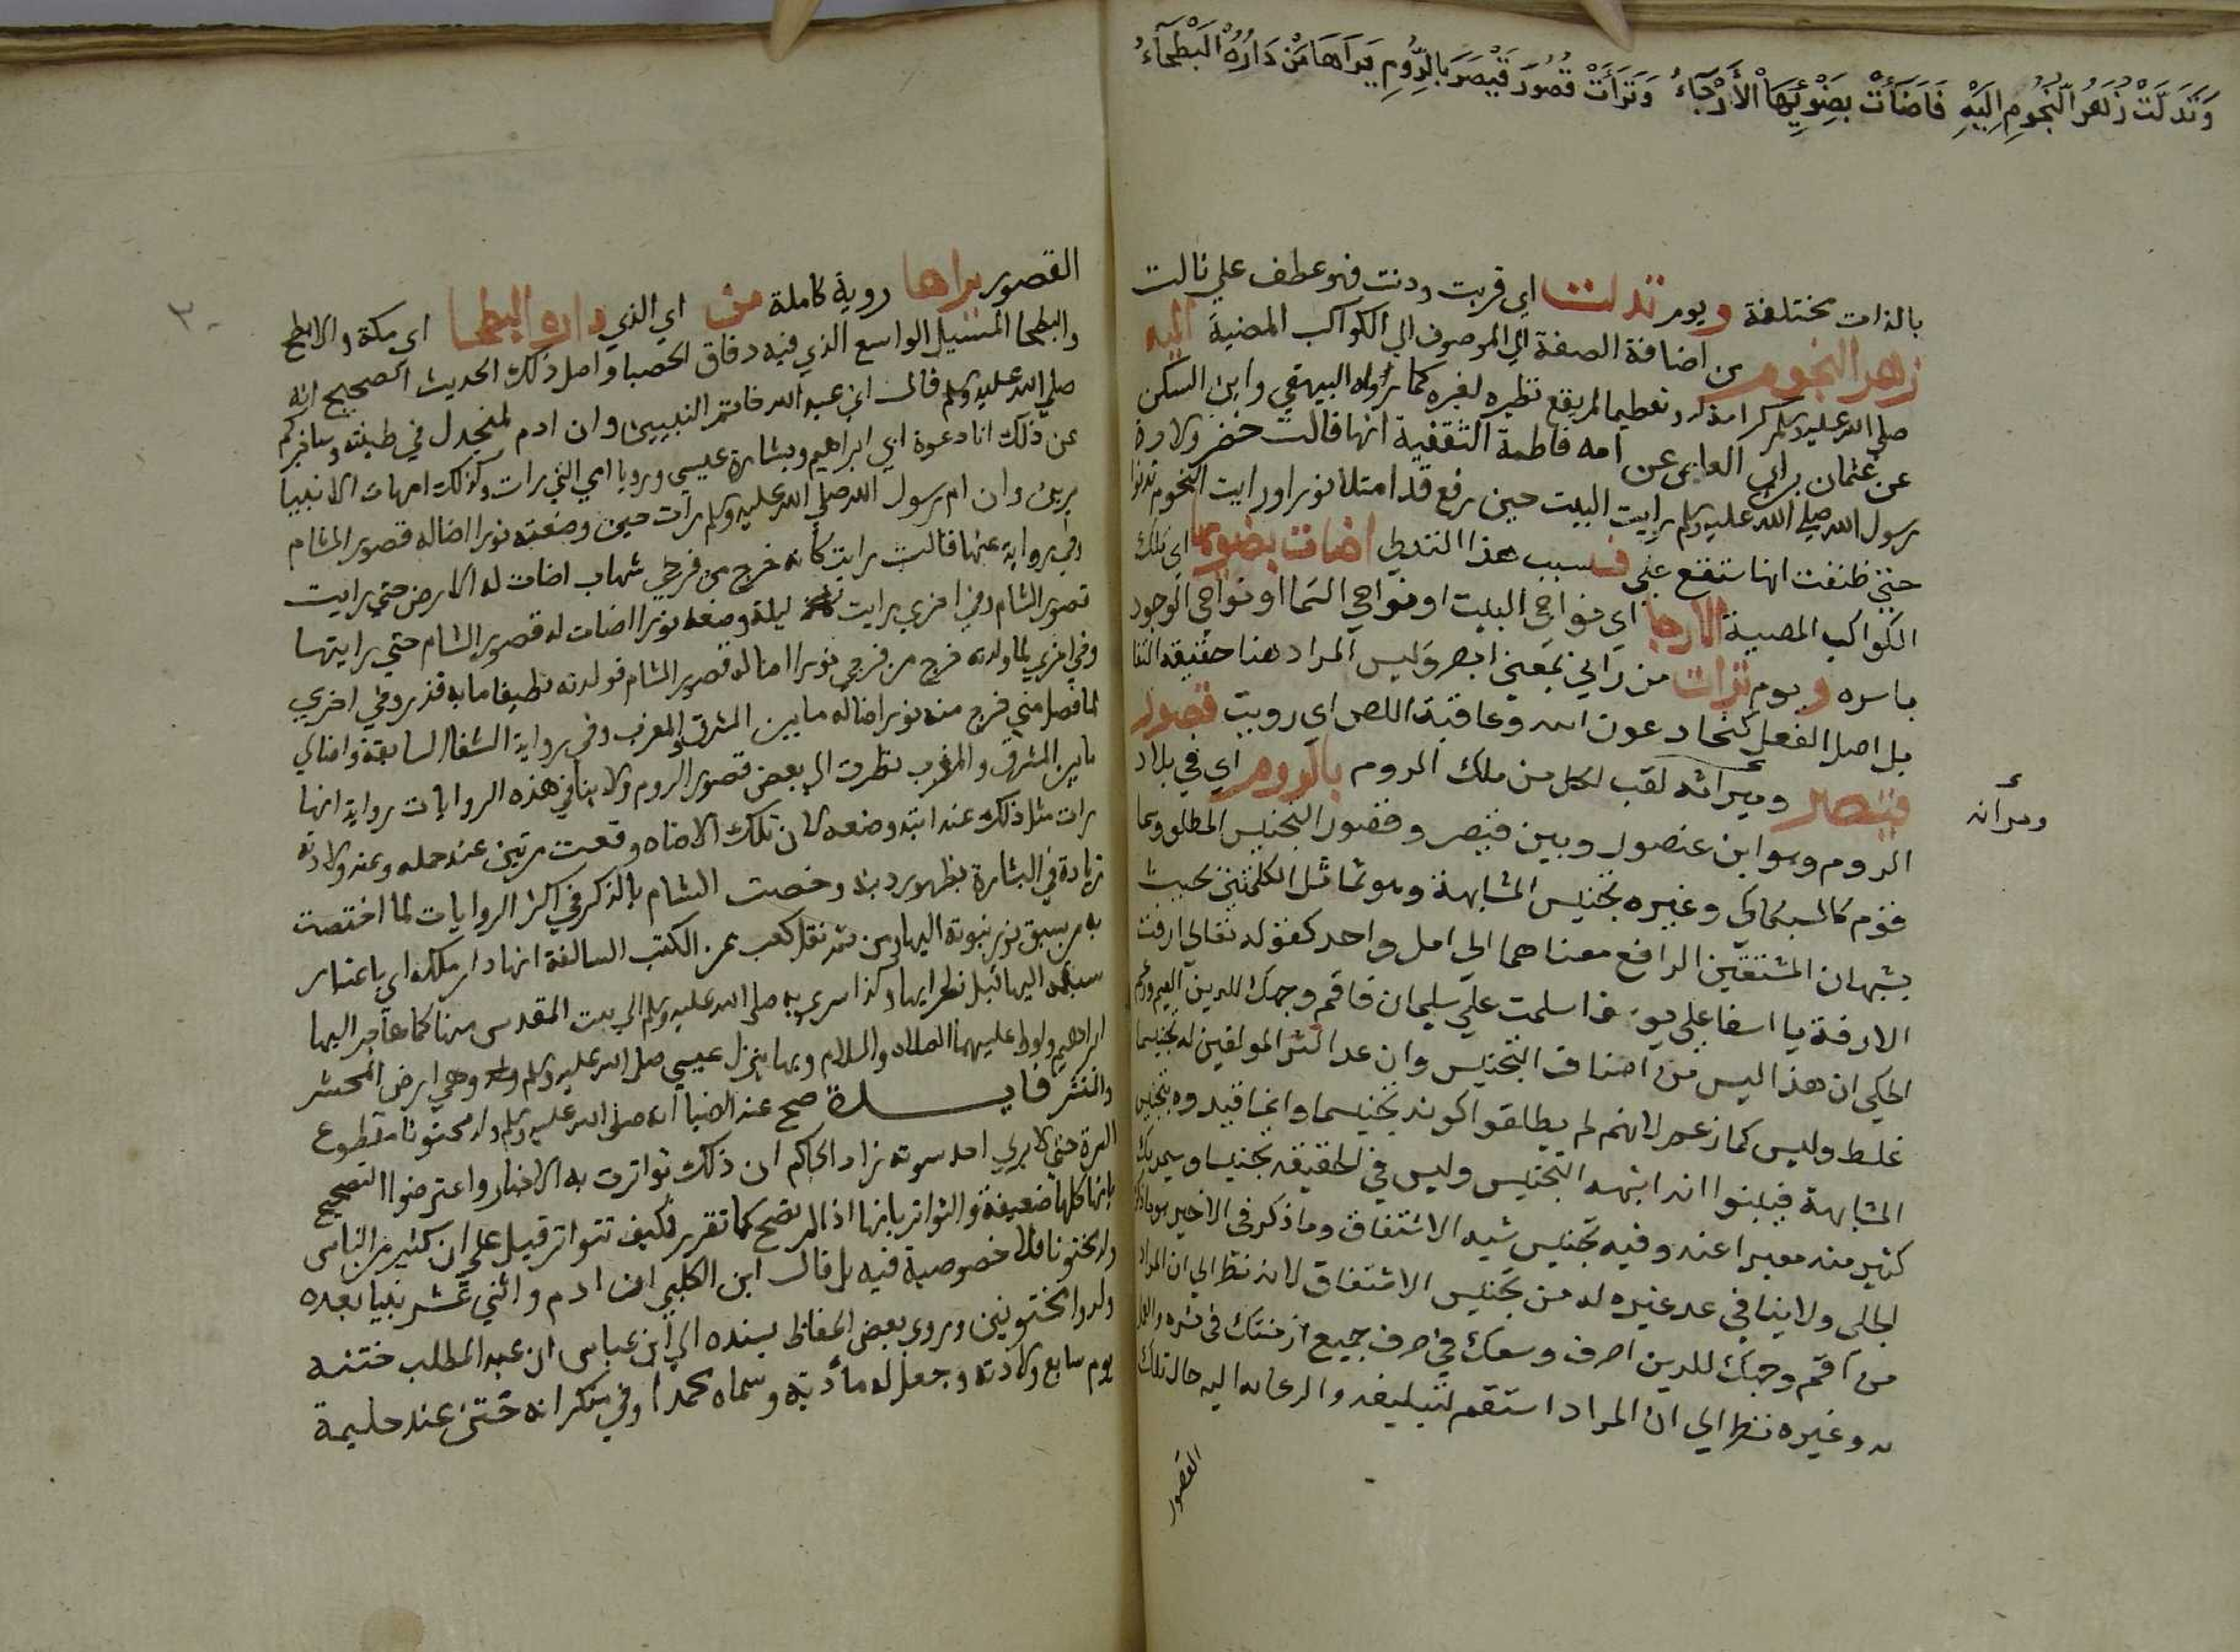 وَتَدَلَّتْ زُهْرُ النُّجُومِ اِلَيْهِ فَاَضَاءَتْ بِضَوْئِهَا الْأَرْجَاءُ وَتَرَاءَتْ قُصُورُ قَيْصَرَ بِالرُّومِ يَرَاهَا مَنْ دَارُهُ الْبَطْحَاءُ
بالذات مختلفة ويوم تدلت اي قربت ودنت فهو عطف علي نالت
زهر النجوم من اضافة الصفة الي الموصوف اي الكواكب المضية اليه
صلي الله عليه وسلم كرامة له وتعظيما لم يقع نظيره لغيره كما رواه البيهقي وابن السكن
عن عثمان بن ابي العاص عن امه فاطمة الثقفية انها قالت حضرت ولادة
رسول الله صلي الله عليه وسلم رايت البيت حين وضع قد امتلا نورا ورايت النجوم تدنوا
حتي ظننت انها ستقع علي فبسبب هذا التدلي اضات بضوئها اي تلك
الكواكب المضية الارجا اي نواحي البيت او نواحي السما او نواحي الوجود
باسره ويوم ترات من راي بمعني ابصر وليس المراد هنا حقيقة التفا
بل اصل الفعل كتجاد عون الله وعاقبة اللص اي رويت قصور
قيصر وميراثه لقب لكل من ملك الروم بالروم اي في بلاد
ومرأنه
الروم وهو ابن عنصول وبين قيصر وقصور التجنيس المطلق وسما
قوم كالسكاكي وغيره تجنيس المشابهة وهو تماثل الكلمتين بحيث
يشبهان المشتقين الراجع معناهما الي اصل واحد كقوله تعالي ازفت
الازفة يا اسفا علي يوسف اسلمت علي سليمان فاقم وجهك للدين القيم وزعم
الحلي ان هذا ليس من اصناف التجنيس وان عد اكثر المولفين له تجنيسا
غلط وليس كما زعم لانهم لم يطلقوا كونه تجنيسا وانما قيدوه بتجنيس
المشابهة فبينوا انه اشبه التجنيس وليس في الحقيقة تجنيسا وسمي بذلك
كثير منه معبرا عنه وفيه تجنيس شبه الاشتقاق وما ذكر في الاخير هو ما ذكره
الحلي ولا ينافي عد غيره له من تجنيس الاشتقاق لانه نظر الي ان المراد
من اقم وجهك للدين اصرف وسعك في صرف جميع ازمنتك في نشره والعمل
به وغيره نظر الي ان المراد استقم لتبليغه والدعاية اليه حال تلك
القصور
٣٠
القصور يراها روية كاملة من اي الذي داره البطحا اي مكة والابطح
والبطحا المسيل الواسع الذي فيه دقاق الحصبا واصل ذلك الحديث الصحيح انه
صلي الله عليه وسلم قال اني عبد الله خاتم النبيين وان ادم لمنجدل في طينته وساخبركم
عن ذلك انا دعوة ابي ابراهيم وبشارة عيسي ورويا امي التي رات وكذلك امهات الانبيا
يرين وان ام رسول الله صلي الله عليه وسلم رات حين وضعته نورا اضا له قصور الشام
وفي رواية عنها قالت رايت كانه خرج من فرجي شهاب اضات له الارض حتي رايت
قصور الشام وفي اخري رايت ليلة وضعه نورا اضات له قصور الشام حتي رايتها
وفي اخري لما ولدته خرج من فرجي نورا اضا له قصور الشام فولدته نظيفا ما به قذر وفي اخري
لما فصل مني خرج منه نور اضا له ما بين المشرق والمغرب وفي رواية الشفا السابقة واضا لي
ما بين المشرق والمغرب نظرت الي بعض قصور الروم ولا ينافي هذه الروايات رواية انها
رات مثل ذلك عند ابتدا وضعه لان تلك الاضاه وقعت مرتين عند حمله وعند ولادته
زيادة في البشارة بظهور دينه وخصت الشام بالذكر في اكثر الروايات لما اختصت
به من سبق نور نبوته اليها ومن ثم نقل كعب عن الكتب السالفة انها دار ملكه اي باعتبار
سبقه اليها قبل نظرايها وكذا سري به صلي الله عليه وسلم الي بيت المقدس منها كما هاجر اليها
ابراهيم ولوط عليهما الصلاة والسلام وبها ينزل عيسي صلي الله عليه وسلم وهي ارض المحشر
والمنشر فايــــدة صح عند الضيا انه صلي الله عليه وسلم ولد مختونا مقطوع
السرة حتي لا يري احد سوته زاد الحاكم ان ذلك تواترت به الاخبار واعترضوا التصحيح
بانها كلها ضعيفة والتواتر بانها اذا لم تصح كما تقرر فكيف تتواتر قيل علي ان كثير من الناس
ولد مختونا فلا خصوصية فيه بل قال ابن الكلبي ان ادم واثني عشر نبيا بعده
ولدوا مختونين وروي بعض الحفاظ بسنده الي ابن عباس ان عبد المطلب ختنه
يوم سابع ولادته وجعل له مأدبة وسماه محمدا وفي منكر انه ختن عند حليمة